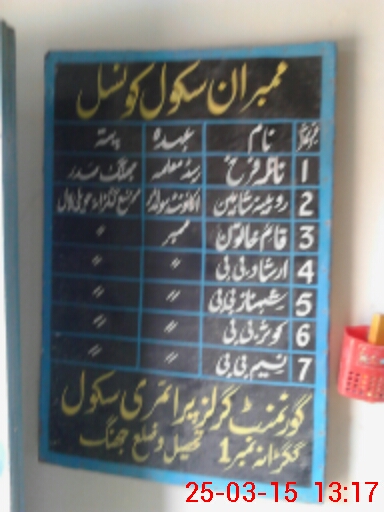 ممبران سکول کونسل
نمبر شمار نام عہدہ پتہ
1 نائلہ فرخ ہیڈ معلمہ جھنگ صدر
2 روبینہ شاہین اکاؤنٹ ہولڈر موضع
3 قائم خاتون ممبر 〃
4 ارشاد بی بی 〃 〃
5 شہناز بی بی 〃 〃
6 کوثر بی بی 〃 〃
7 نسیم بی بی 〃 〃
گورنمنٹ گرلز پرائمری سکول
نمبر 1 تحصیل و ضلع جھنگ
25-03-15 13:17